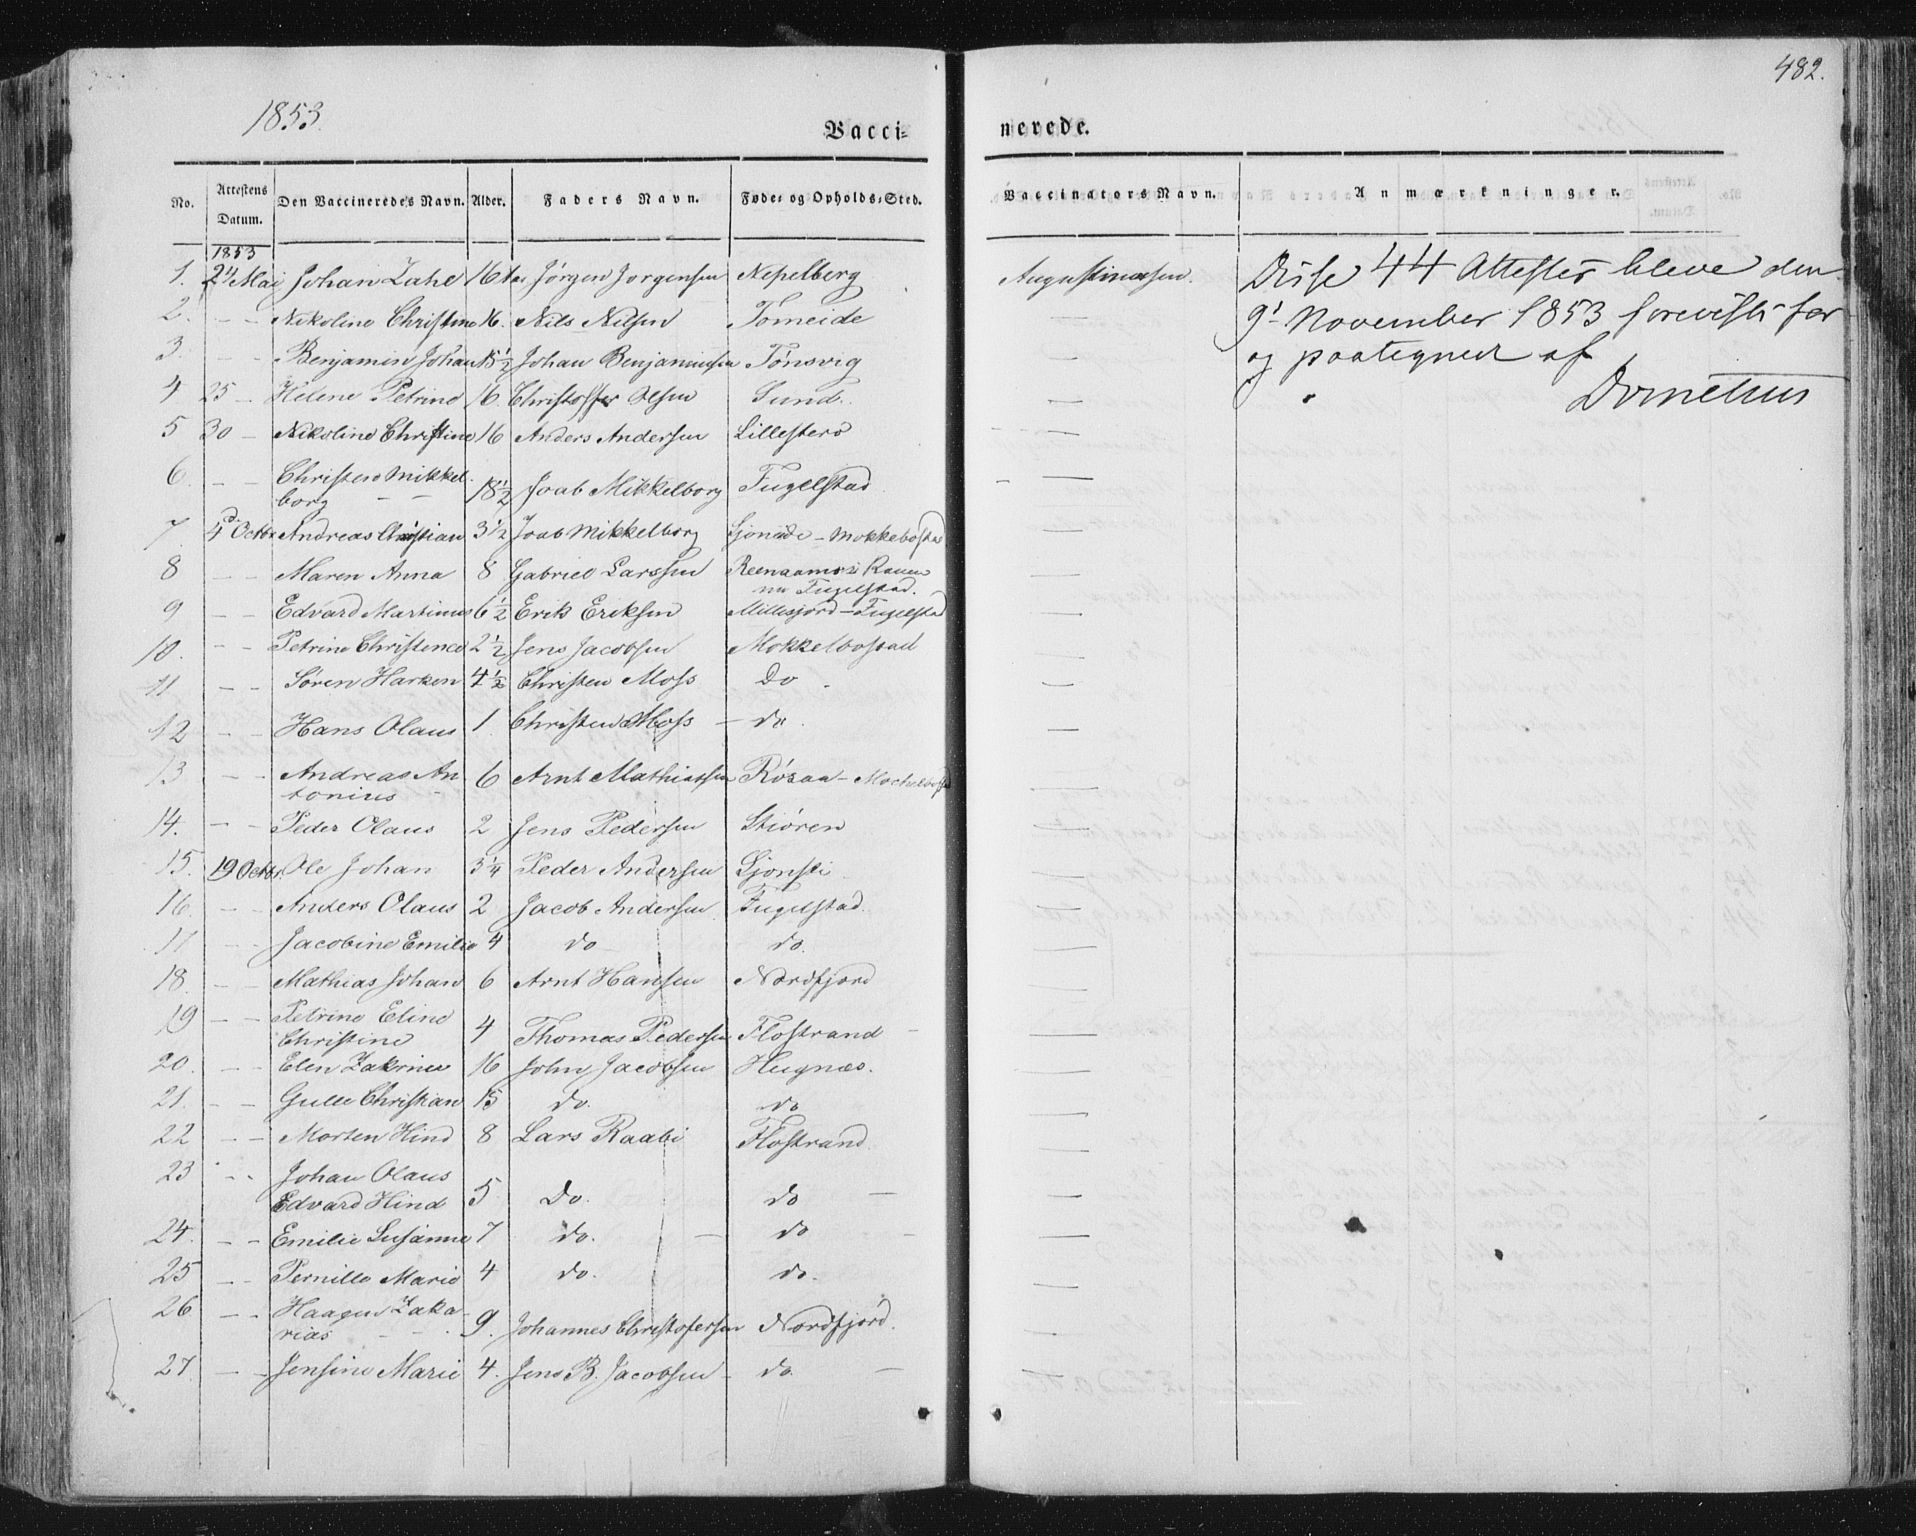 482.
1853.
Vacci-
nerede.
No. Attestens Datum. Den Vaccineredes Navn. Alder. Faders Navn. Føde- og Opholds-Sted.
Vaccinators Navn. Anmærkninger.
1853
1. 24 Mai Johan Zahl 16 Jørgen Jorgensen Nepelberg
2. - - Nikoline Christine 16. Nils Nilsen Tomeide
3. - - Benjamin Johan 15½ Johan Benjaminsen Tønsvig
4 25 - Helene Petrine 16. Christoffer Olsen Sund.
5 30 - Nikoline Christine 16 Anders Andersen Lillesterø
6. - - Christen Mikkel-
borg - - 18½ Joab Mikkelborg Fugelstad
7. 4d Octbr Andreas Christian 3½ Joab Mikkelborg Sjoneide - Mokkebostad
8 - - Maren Anna 8 Gabriel Larssen
nu Fugelstad.
9 - - Edvard Martinus 6½ Erik Eriksen Millesjord - Fugelstad
10. - - Petrine Christence 2½ Jens Jacobsen Mokkelbostad
11 - - Søren Harken 4½ Christen Moss Do -
12 - - Hans Olaus 1. Christen Moss - do.
13 - - Andreas An
tonius 6 Arnt Mathiassen Røsaa - Mockelbost
14. - - Peder Olaus 2 Jens Pedersen Stiøren
15. 19 Octbr. Ole Johan 3¼ Peder Andersen Sjonsti
16. - - Anders Olaus 2 Jacob Andersen Fugelstad.
17 - - Jacobine Emilie 4 do do.
18. - - Mathias Johan 6 Arnt Hansen Nordfjord
19 - - Petrine Eline
Christine 4 Thomas Pedersen Flostrand -
20. - - Elen Zakrine 16 John Jacobsen Hugnæs.
21. - - Gulle Christian 15 do. do
22 - - Morten Hind 8 Lars Raabi Flostrand.
23 - - Johan Olaus
Edvard Hind 5 Do. do -
24. - - Emilie Susanne 7 do. - do -
25 - - Pernille Marie 4 do. do.
26 - - Haagen Zaka-
rias - - 9. Johannes Christofersen Nordfjord.
27. - - Jensine Marie 4. Jens B. Jacobsen - do. -
Augustinussen.
Disse 44 Attester bleve den
9d November 1853 foreviste for
og paategnet af